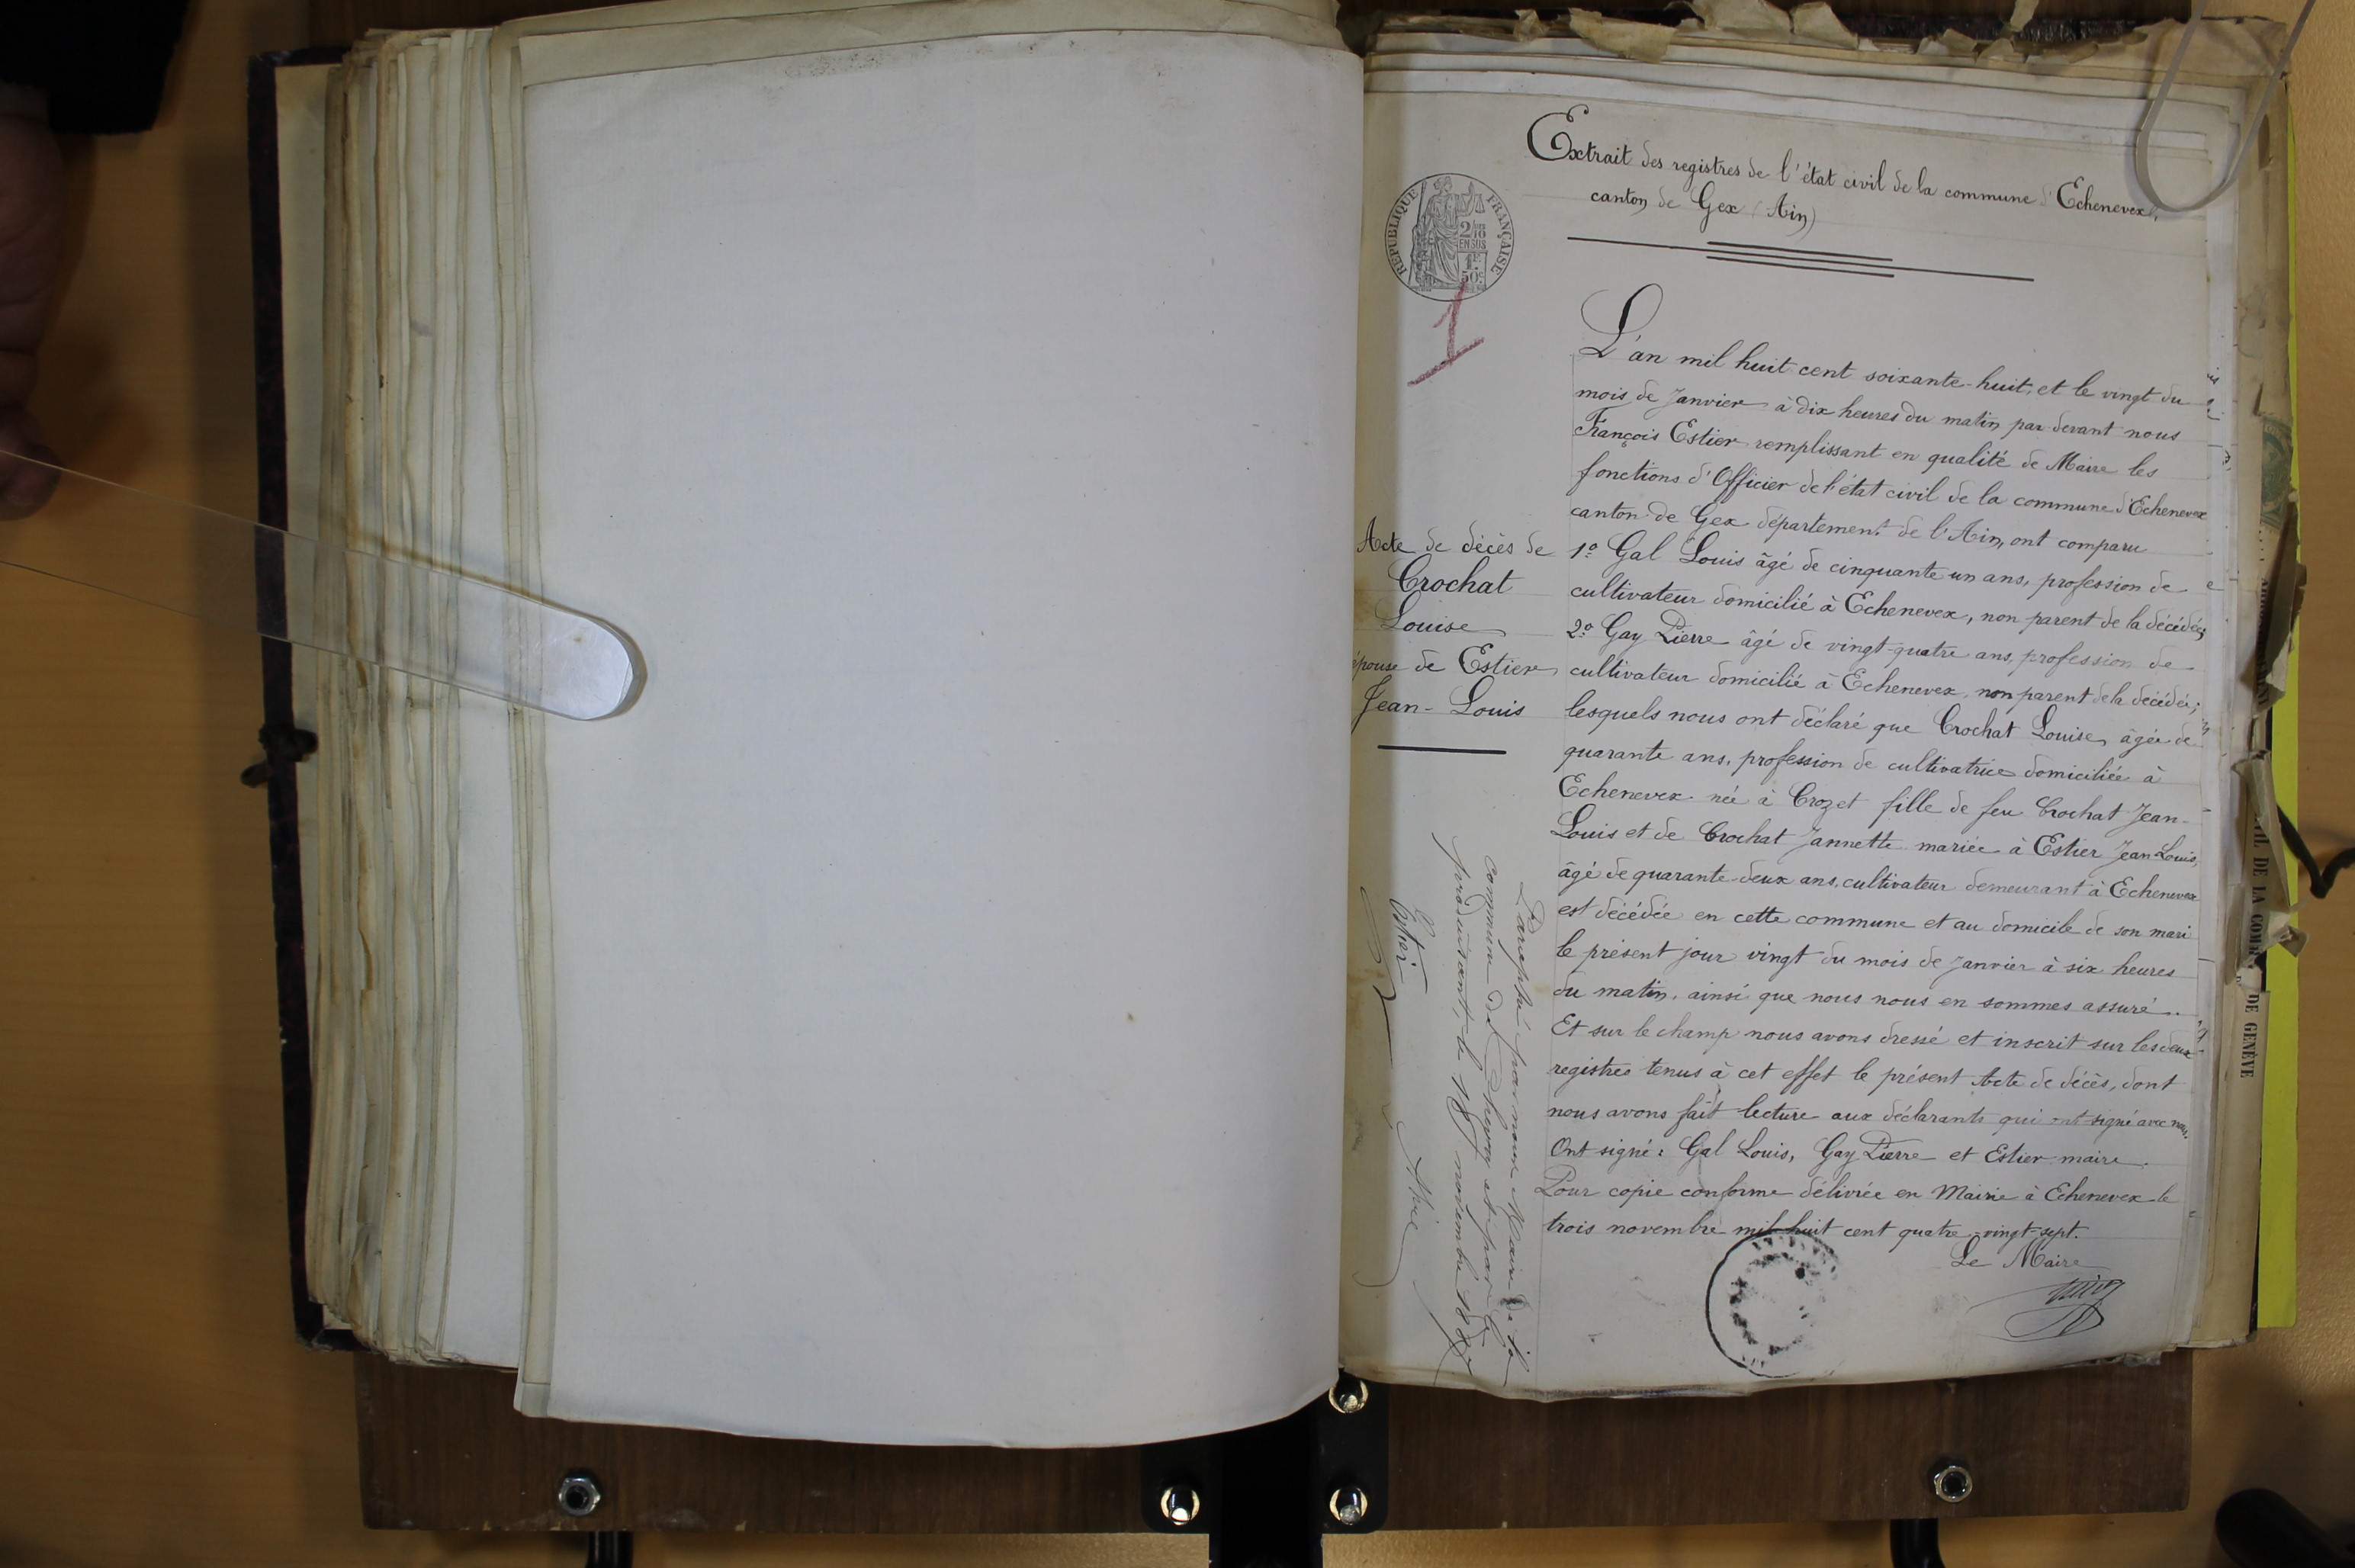 Extrait des registres de l'état civil de la commune d'Echenevex,
canton de Gex (Ain)
REPUBLIQUE FRANÇAISE
2/10
EN SUS
1F
50c
1
L'an mil huit cent soixante-huit, et le vingt du
mois de Janvier à dix heures du matin par devant nous
François Estier remplissant en qualité de Maire les
fonctions d'Officier de l'état civil de la commune d'Echenevex
canton de Gex département de l'Ain, ont comparu
1º Gal Louis âgé de cinquante un ans, profession de
cultivateur domicilié à Echenevex, non parent de la décédée;
2º Gay Pierre âgé de vingt-quatre ans, profession de
cultivateur domicilié à Echenevex, non parent de la décédée;
lesquels nous ont déclaré que Crochat Louise, âgée de
quarante ans, profession de cultivatrice domiciliée à
Echenevex née à Crozet fille de feu Crochat Jean-
Louis et de Crochat Jannette mariée à Estier Jean-Louis,
âgé de quarante-deux ans, cultivateur demeurant à Echenevex
est décédée en cette commune et au domicile de son mari
le présent jour vingt du mois de Janvier à six heures
du matin, ainsi que nous nous en sommes assuré..
Et sur le champ nous avons dressé et inscrit sur les deux
registres tenus à cet effet le présent Acte de décès, dont
nous avons fait lecture aux déclarants qui ont signé avec nous.
Ont signé: Gal Louis, Gay Pierre et Estier maire.
Pour copie conforme délivrée en Mairie à Echenevex le
trois novembre mil huit cent quatre-vingt-sept.
Le Maire
Acte de décès de
Crochat
Louise
épouse de Estier
Jean-Louis
Paraphé par nous Maire de la
commune de et par le
produisant, le 18 novembre 1887
Estier
DE LA COM
DE GENÈVE